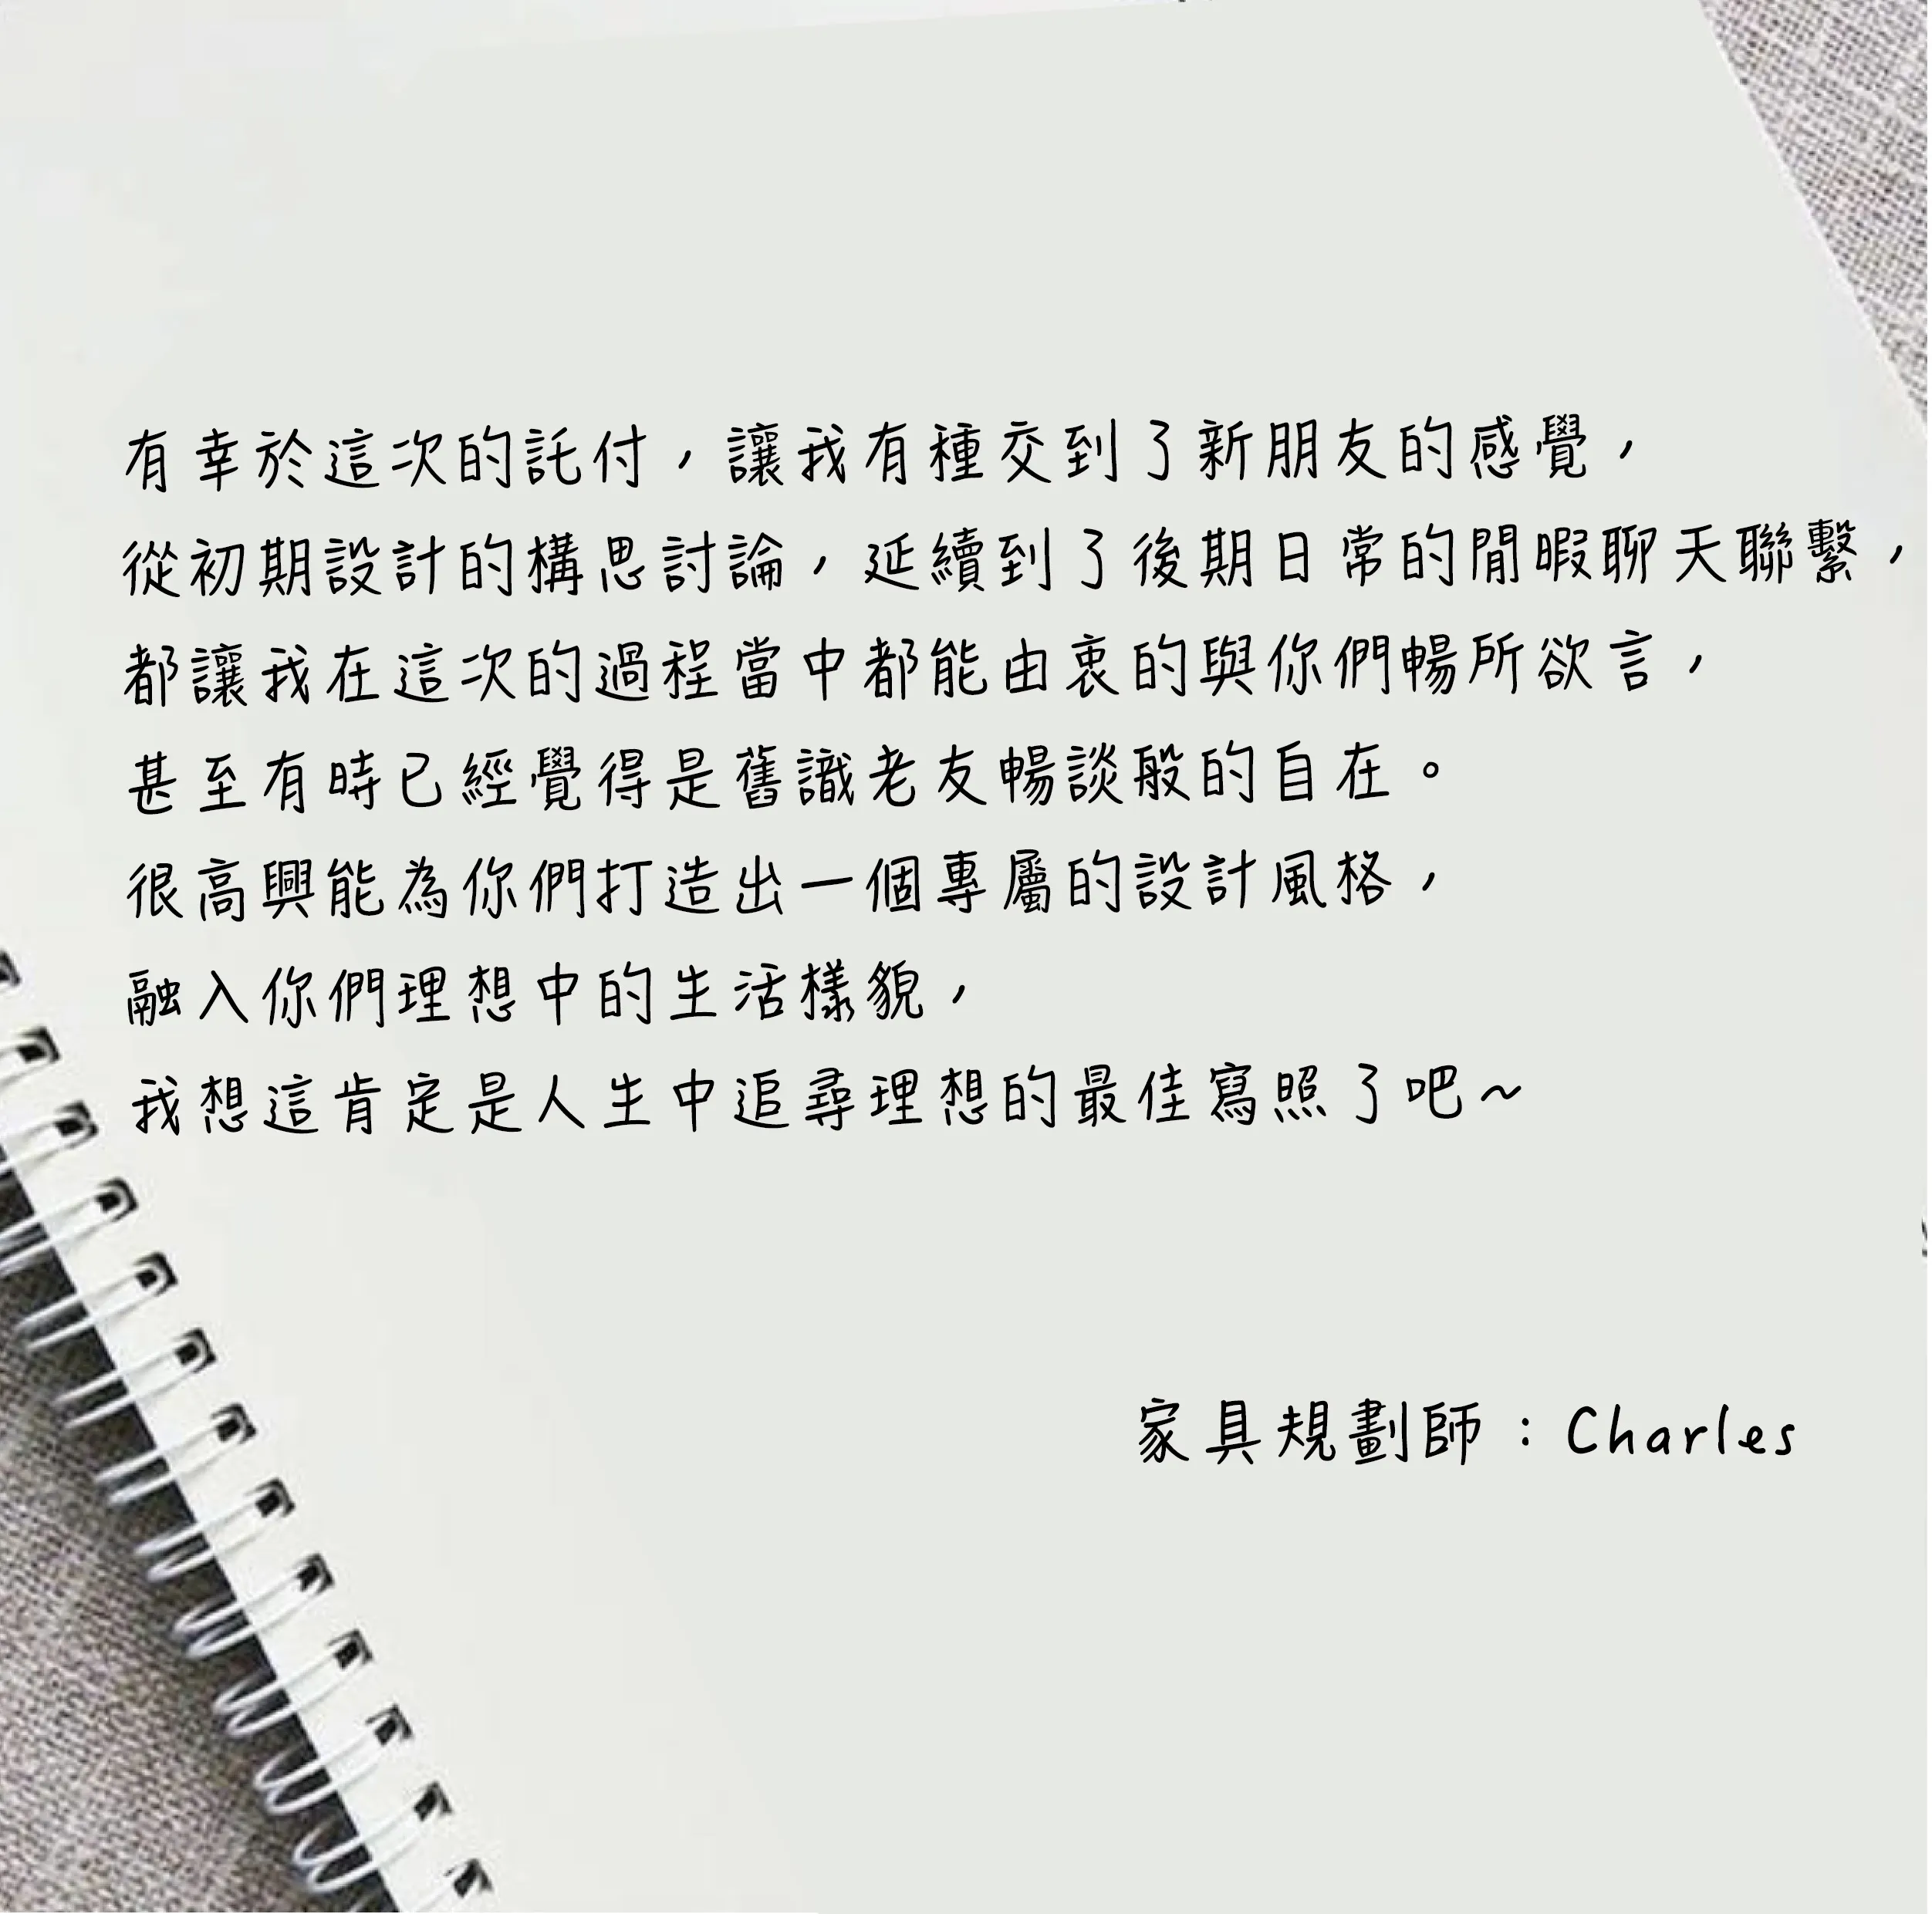 有幸於這次的託付，讓我有種交到了新朋友的感覺，
從初期設計的構思討論，延續到了後期日常的閒暇聊天聯繫，
都讓我在這次的過程當中都能由衷的與你們暢所欲言，
甚至有時已經覺得是舊識老友暢談般的自在。
很高興能為你們打造出一個專屬的設計風格，
融入你們理想中的生活樣貌，
我想這肯定是人生中追尋理想的最佳寫照了吧~
家具規劃師：Charles